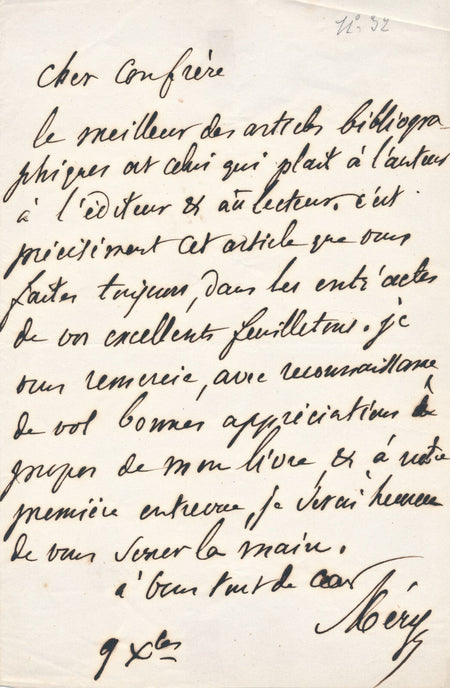 N° 32
cher confrère
le meilleur des articles bibliogra-
phiques est celui qui plait à l'auteur
à l'éditeur & au lecteur. c'est
précisément cet article que vous
faites toujours, dans les entr'actes
de vos excellents feuilletons. je
vous remercie, avec reconnaissance
de vos bonnes appréciations à
propos de mon livre & à notre
première entrevue, je serai heureux
de vous serrer la main.
à vous tout de cœur
Méry
9 Xbre